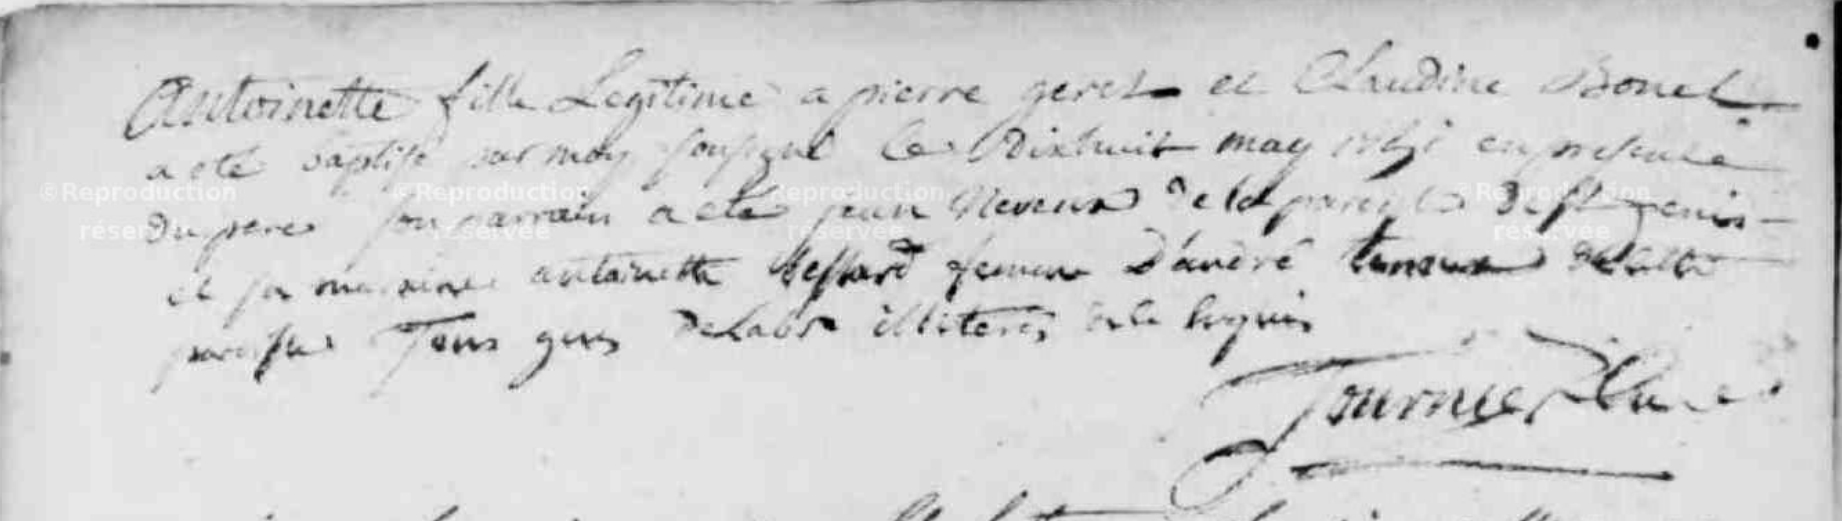 Antoinette fille Legitime a pierre geret et Claudine Bonet
a eté baptisé par moy soussigné le Dixhuit may en presence
Du pere son parrain a eté jean Neveux de la paroisse de st genis
et sa marraine antoinette femme D'andré
paroisse Tous gens De Labr illiteres de ce enquis
Tournier Curé
©Reproduction réservée ©Reproduction réservée ©Reproduction réservée ©Reproduction réservée